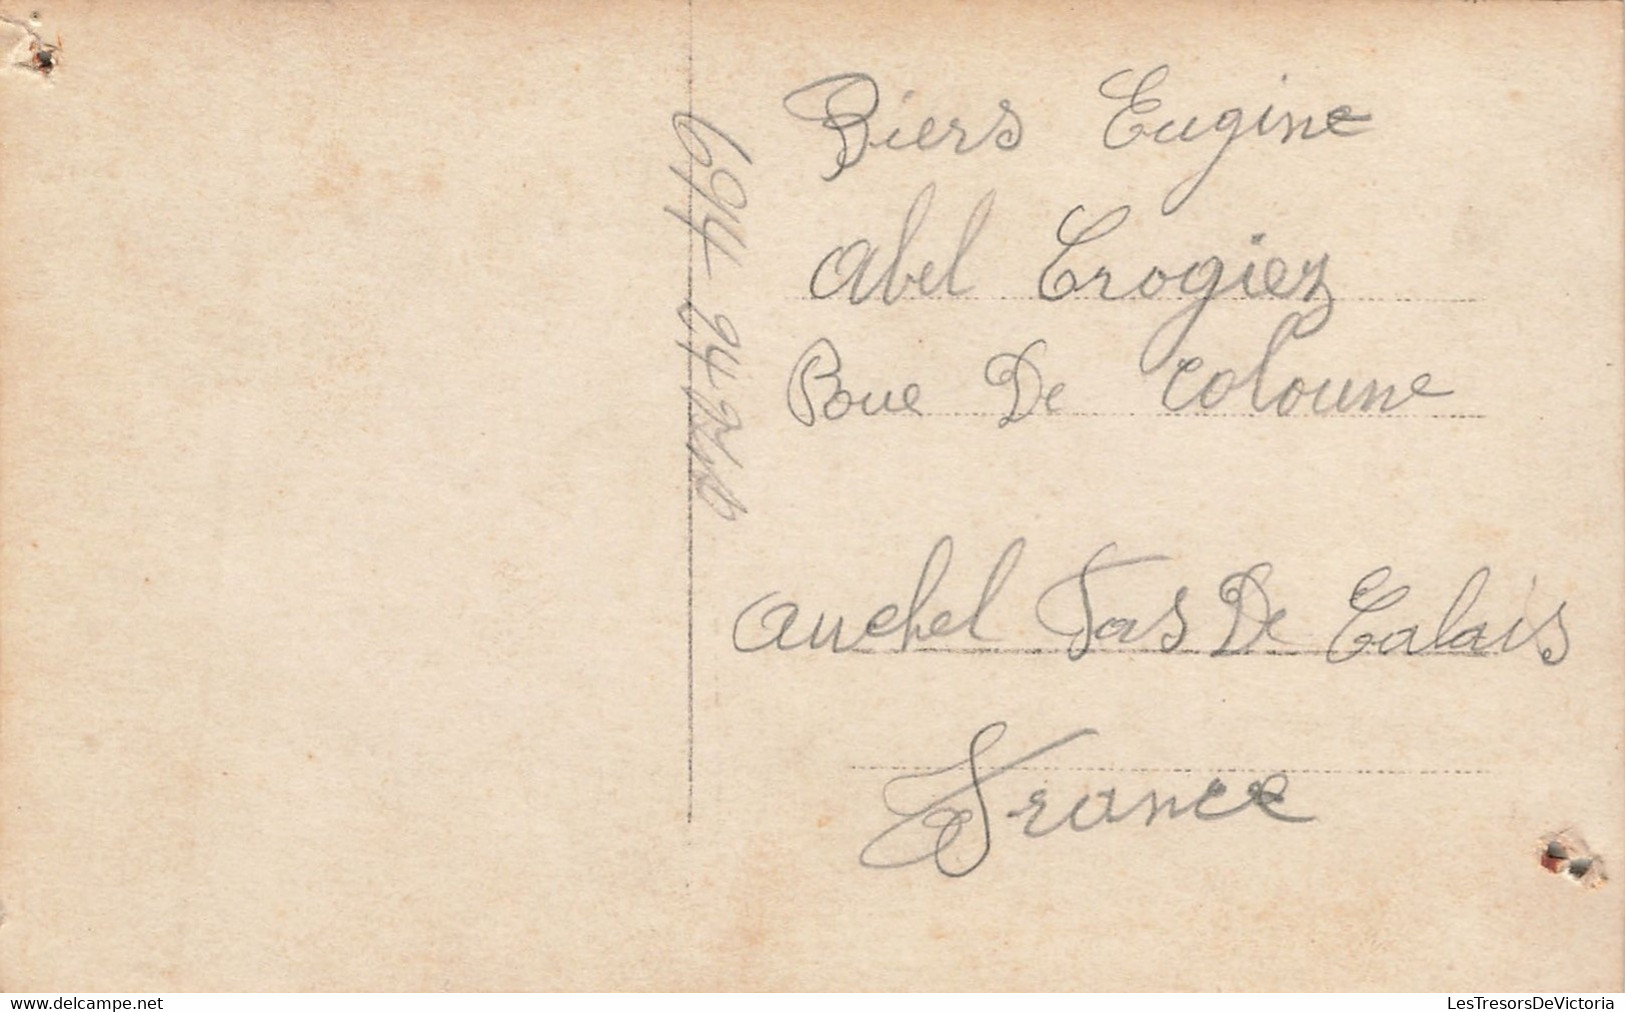 Biers Eugine
Abel Crogiez
Roue De Coloune
Auchel Pas De Calais
France
694
delcampe.net
LesTresorsDeVictoria